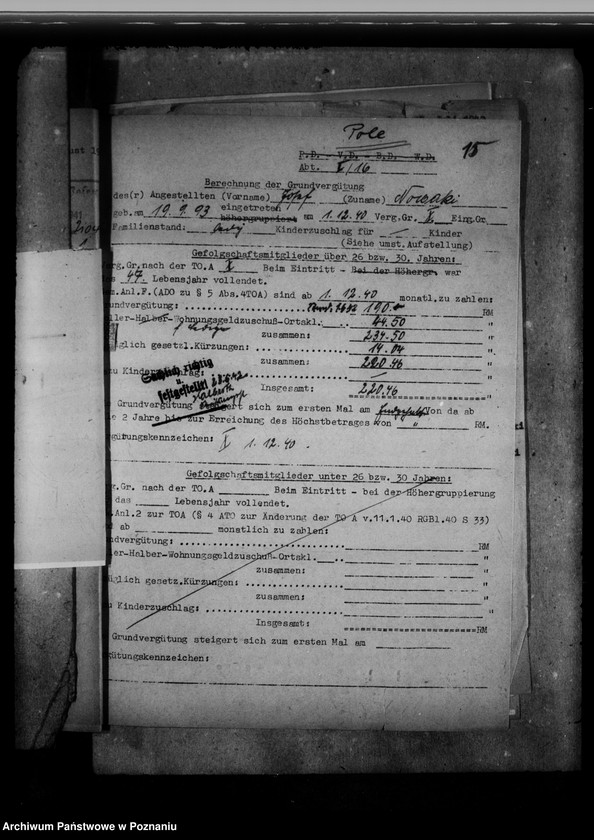 Pole
15
P.D. - V.D. - B.D. - W.D.
Abt. I/16
Berechnung der Grundvergütung
des(r) Angestellten (Vorname) Josef (Zuname) Nowaki
eingetreten
geb.am 19.9.93 höhergruppiert am 1.12.40 Verg.Gr. X Eing.Gr.
Familienstand: ledig Kinderzuschlag für — Kinder
(Siehe umst.Aufstellung)
Gefolgschaftsmitglieder über 26 bzw. 30. Jahren:
rg.Gr.nach der TO.A X Beim Eintritt - Bei der Höhergr. war
47. Lebensjahr vollendet.
.Anl.F.(ADO zu § 5 Abs.4TOA) sind ab 1. 12.40 monatl.zu zahlen:
undvergütung: 190.- RM
ller-Halber-Wohnungsgeldzuschuß-Ortskl. 44.50 "
f. Ledige zusammen: 234.50 "
glich gesetzl.Kürzungen: 14.04 "
zusammen: 220.46 "
u Kinderzuschlag: — "
Sachlich richtig
u.
festgestellt
Insgesamt: 220.46 "
Grundvergütung steigert sich zum ersten Mal am Von da ab
e 2 Jahre bis zur Erreichung des Höchstbetrages von " RM.
gütungskennzeichen: X 1.12.40.
Gefolgschaftsmitglieder unter 26 bzw. 30 Jahren:
g.Gr. nach der TO.A Beim Eintritt - bei der Höhergruppierung
das Lebensjahr vollendet.
.Anl.2 zur TOA (§ 4 ATO zur Änderung der TO A v.11.1.40 RGBl.40 S 33)
d ab monatlich zu zahlen:
ndvergütung: RM
ler-Halber-Wohnungsgeldzuschuß-Ortskl. "
zusammen: "
glich gesetz.Kürzungen: "
zusammen: "
u Kinderzuschlag: "
Insgesamt: RM
Grundvergütung steigert sich zum ersten Mal am
gütungskennzeichen:
Archiwum Państwowe w Poznaniu